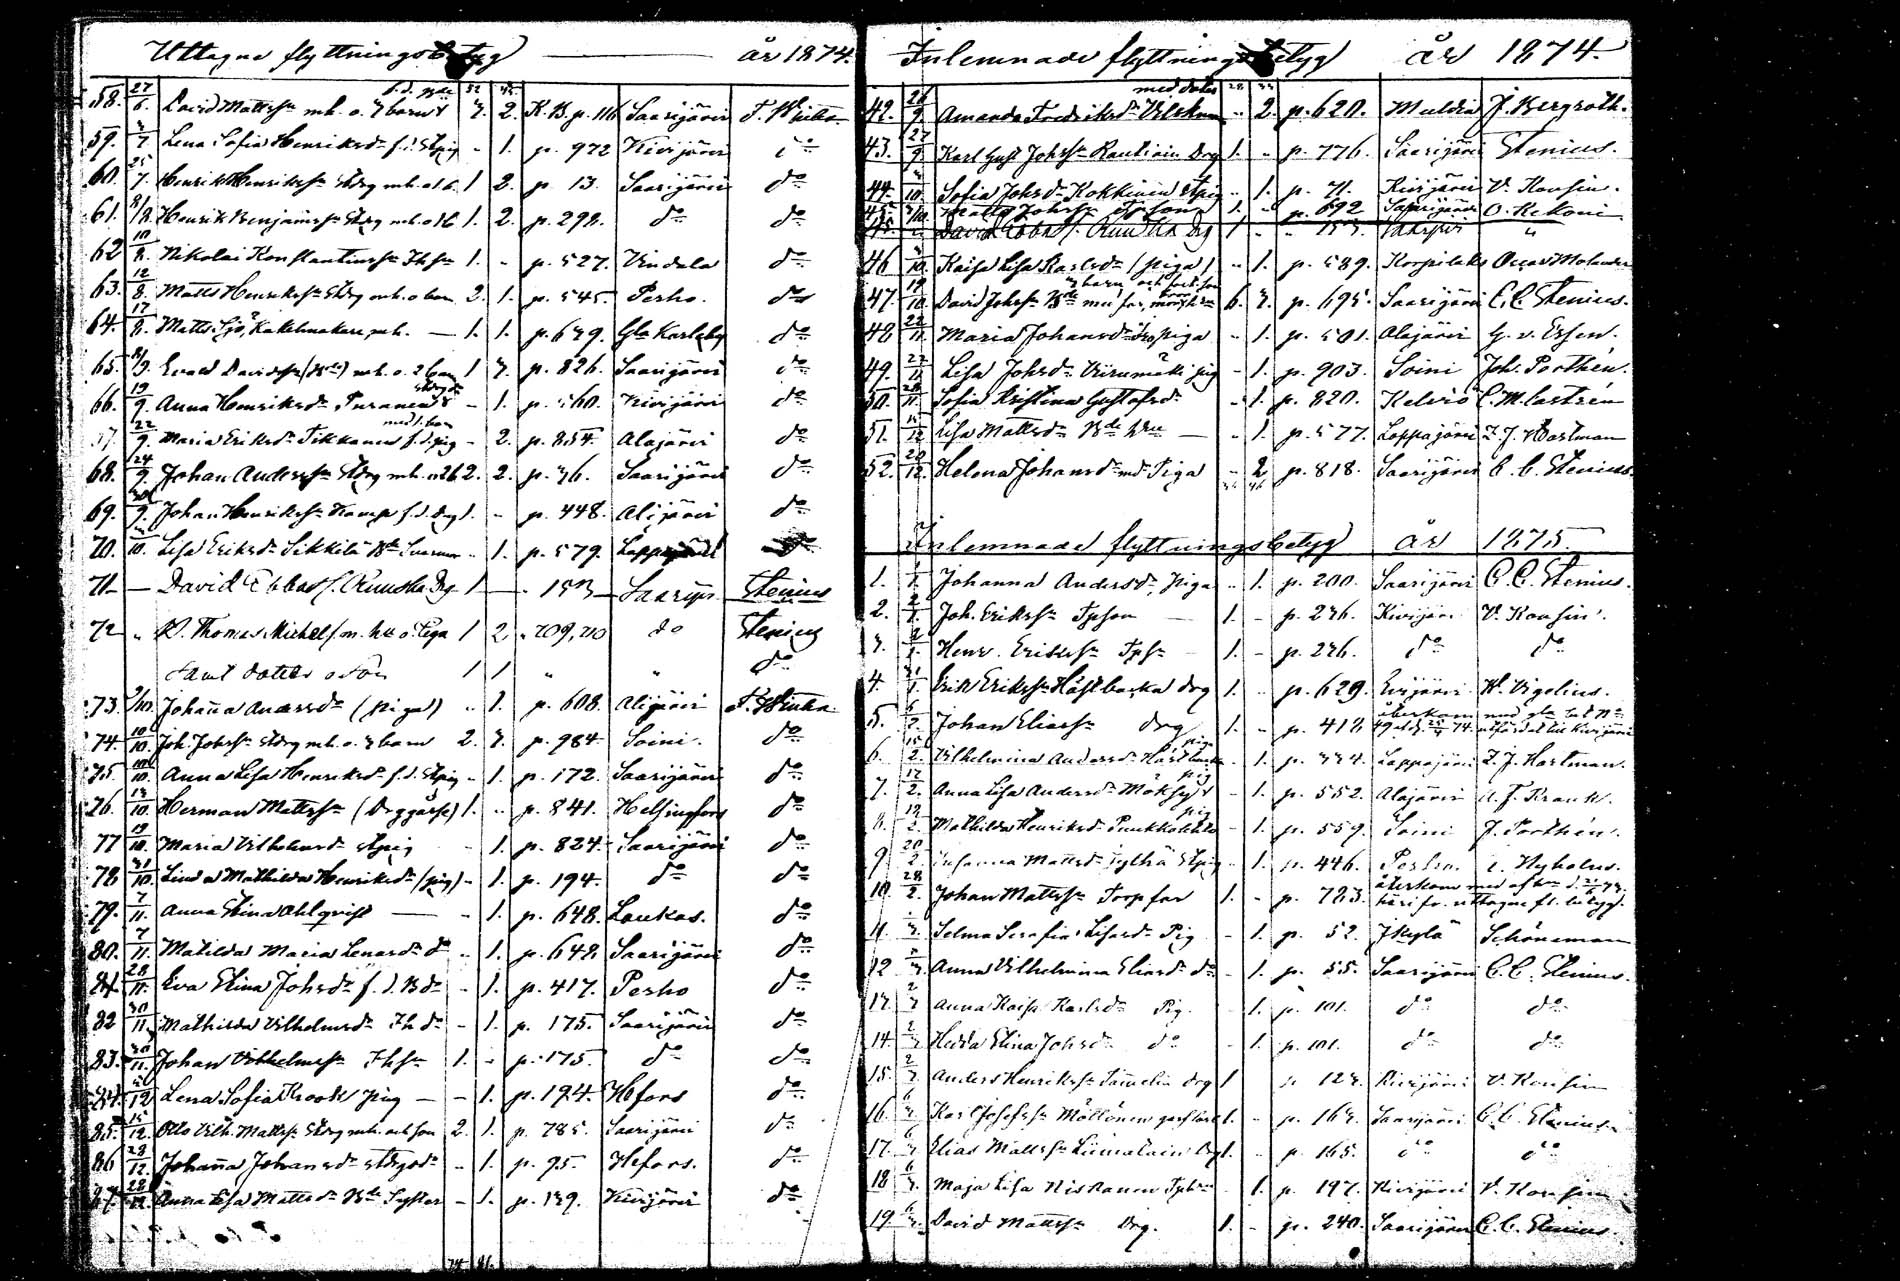 Uttagne flyttningsbetyg — år 1874.
f.d. Bde 52 45
58. 27/6. David Mattss mh. o. 3 barn 3. 2. K.B. p. 116 Saarijärvi F. Winter
59. 7. Lena Sofia Henriksdr f.d. Stpig - 1. p. 972 Kivijärvi do
60. 25/7. Henrik Henrikss Stdrg mh. o 1 b. 1 2. p. 13. Saarijärvi do
61. 8/8. Henrik Benjamss Stdrg mh. o 1 b 1. 2. p. 298. do do
62 10/8. Nikolai Konstantinss Ihs 1. - p. 527. Vindala do
63. 12/8. Matts Henrikss Stdrg mh. o barn 2. 1. p. 545. Perho. do
64. 17/8. Matts Sjö, Kakelmakare, mh. — 1. 1. p. 639. Gla Karleby do
65. 8/9. Evald Davidss (Bde) mh. o. 2 barn 1 3. p. 826. Saarijärvi do
66. 19/9. Anna Henriksdr Puranen - 1. p. 560. Kivijärvi do
med 1. barn
67. 22/9. Maria Eriksdr Tikkanen f.d. pig - 2. p. 854. Alajärvi do
68. 24/9. Johan Anderss Stdrg mh. o 2 b 2. 2. p. 36. Saarijärvi do
69. 30/9. Johan Henrikss Kamp f.d. drg 1. - p. 448. Alajärvi do
70. /10. Lisa Eriksdr Sikkilä - 1. p. 579. Lappajärvi
71 — David Ebbas s. Ruuska Drg 1 — " 153 — Saarijrvi Stenius
72 " Thomas Mickels s. m. h. o. Piga 1 2 " 209, 210 do Stenius
samt dotter o son 1 1 " " do
73. /10. Johanna Andersdr (piga) " 1. p. 608. Alajärvi F. Winter
74. 10/10. Joh. Johss Stdrg mh. o. 3 barn 2. 3. p. 984. Soini. do
75. 10/10. Anna Lisa Henriksdr f.d. Stpig - 1. p. 172. Saarijärvi do
76. 13/10. Herman Mattss (Dreggosse) 1. " p. 841. Helsingfors do
77 19/10. Maria Vilhelmsdr Stpig - 1. p. 824. Saarijärvi do
78 31/10. Linda Mathilda Henriksdr (pig) - 1. p. 194. do do
79. 7/11. Anna Stina Ahlqvist — - 1. p. 648. Laukas. do
80. 7/11. Matilda Maria Lenardr do - 1. p. 648. Saarijärvi do
81. 28/11. Eva Stina Johsdr f.d. Bdr - 1. p. 417. Perho do
82 30/11. Mathilda Vilhelmsdr Ihdr - 1. p. 175. Saarijärvi do
83. 30/11. Johan Vilhelmss Ihs 1. - p. 175. do do
84. /12 Lena Sofia Krook pig — - 1. p. 194. Hfors do
85. 15/12. Otto Vilh. Mattss Stdrg mh. och son 2. 1. p. 785. Saarijärvi do
86 28/12. Johanna Johansdr stdrgdr - 1. p. 95. Hfors. do
87. 28/12. Anna Lisa Mattsdr Bde Syster - 1. p. 139. Kivijärvi do
74 81.
Inlemnade flyttningsbetyg år 1874.
med dotter 28 33
42. 26/9. Amanda Fredriksdr " 2. p. 620. Multia J. Bergroth.
43. 27/9. Karl Gust Johss Rautiain Drg 1. " p. 776. Saarijärvi Stenius.
44. /10. Sofia Johsdr Kokkinen Stpig - 1. p. 71. Kivijärvi V. Konsin.
45. /10. Matts Johss Tpson 1. " p. 692 Saarijärvi O. Rekoni
David Ebbas s. Ruuska Drg 1 " " 153. Saarijrvi "
46 /10. Kaisa Lisa Karlsdr (piga) " 1. p. 589. Korpilaks Oscar Molander
47. 19/10. David Johss Bde med far, mor 6. 3. p. 695. Saarijärvi C. C. Stenius.
48 22/11. Maria Johansdr piga - 1. p. 501. Alajärvi G. v. Essen.
49. 27/11. Lisa Johsdr Viirumäki pig - 1. p. 903. Soini Joh. Porthén.
50. 28/11. Sofia Kristina Gustafsdr - 1. p. 820. Kelviå C. M. Castrén
51. /12 Lisa Mattsdr Bde — - 1. p. 577. Lappajärvi Z. J. Hartman
52. 20/12. Helena Johansdr Piga - 2 p. 818. Saarijärvi C. C. Stenius.
Inlemnade flyttningsbetyg år 1875.
1. /1. Johanna Andersdr, piga " 1. p. 200. Saarijärvi C. C. Stenius.
2. 2/1. Joh. Erikss Tpson — 1. - p. 236. Kivijärvi V. Konsin.
3. 2/1. Henr. Erikss Tps — 1. - p. 236. do do
4. 31/1. Erik Erikss Håstbacka drg 1. " p. 629. Evijärvi W. Vigelius.
5. 6/2. Johan Eliass drg 1. - p. 412 återkom med
6. 15/2. Vilhelmina Andersdr Håstbacka pig - 1. p. 334. Lappajärvi Z. J. Hartman.
7. 17/2. Anna Lisa Andersdr Möksy pig - 1. p. 552. Alajärvi A. F. Kranck.
8. 19/2. Mathilda Henriksdr pig - 1. p. 559. Soini J. Porthén.
9 20/2. Susanna Mattsdr Stpig - 1. p. 446. Perho. Nyholm.
10. 28/2. Johan Mattss Torpfar 1. - p. 723. återkom med
11 /3. Selma Serafia Lisasdr Pig - 1. p. 52. Jkylä Schöneman
12 2/3. Anna Vilhelmina Eliasdr do - 1. p. 55. Saarijärvi C. C. Stenius.
13. 2/3. Anna Kaisa Karlsdr Pig. - 1. p. 101. do do
14 2/3. Hedda Stina Johsdr do - 1. p. 101. do do
15. 2/3. Anders Henrikss drg 1 p. 123. Kivijärvi V. Konsin
16. 6/3. Karl Josefss Möttönen 1. - p. 163. Saarijärvi C. C. Stenius.
17. 6/3. Elias Mattss Liimatain Drg 1. - p. 165. do do
18 6/3. Maja Lisa Niskanen - 1. p. 197. Kivijärvi V. Konsin
19. 6/3. David Mattss Drg. 1. - p. 240. Saarijärvi C. C. Stenius.